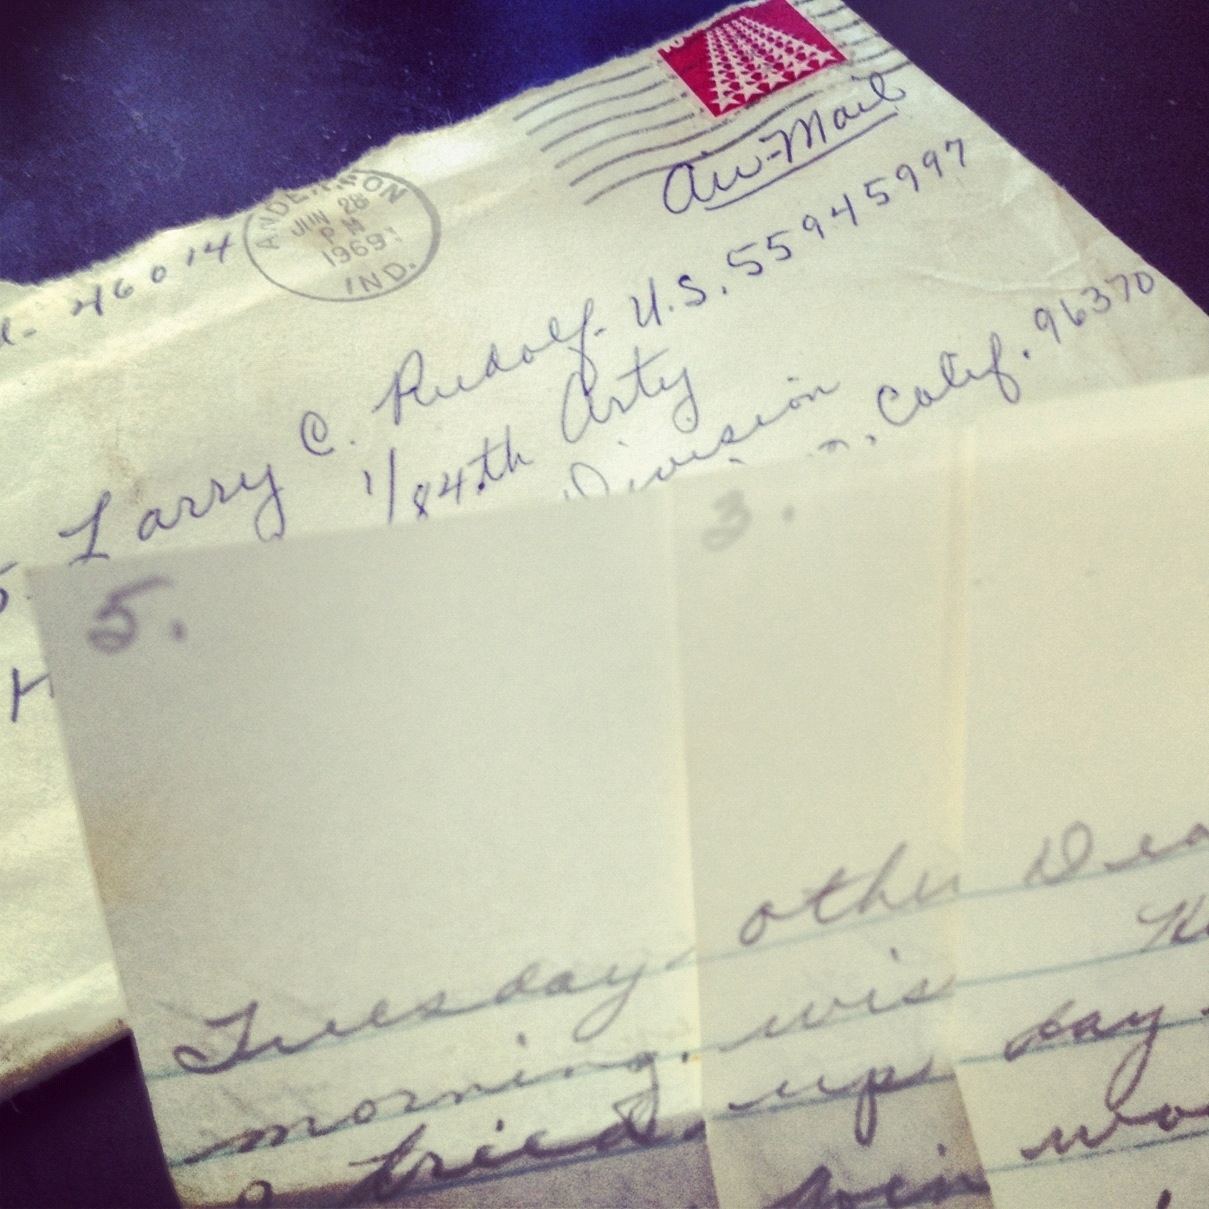 Air-Mail
46014
ANDERSON
JUN 28
PM
1969
IND.
Larry C. Rudolf - U.S. 55945997
1/84th Arty
Division
Calif. 96370
5.
3.
Tuesday
morning.
tried
other
up
day